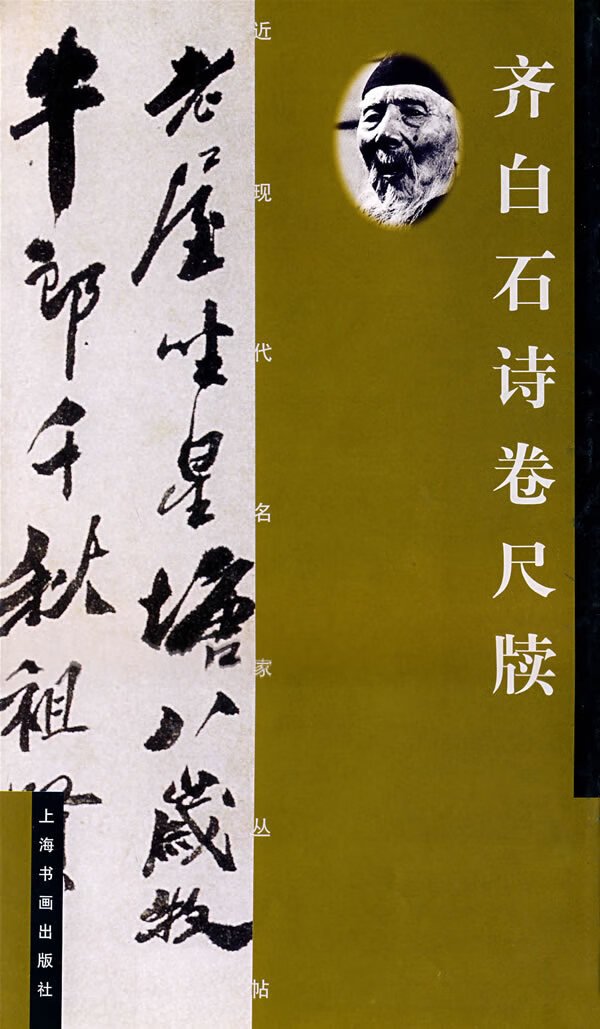 齐白石诗卷尺牍
近现代名家丛帖
老屋星塘八歲牧
牛郎千秋祖
上海书画出版社